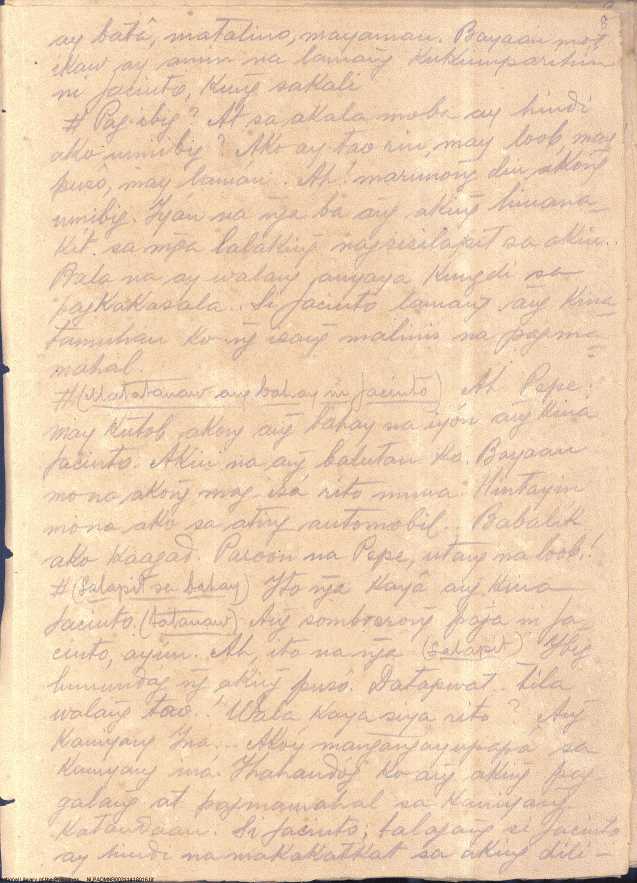 ay batâ, matalino, mayaman. Bayaan mo't
ikaw ay amin na lamang
ni Jacinto, kung sakali
# Pag-ibig? At sa akala moba ay hindi
ako umibig? Ako ay tao rin, may loob may
pusô, may laman. Ah! marunong din akóng
umibig. Iyán na nga ba ang aking hinana-
kit sa mga lalaking nagsisilapit sa akin..
Bala na ay walang anyaya kungdi sa
pagkakasala. Si Jacinto lamang ang kina-
tamuhan ko ng isang malinis na pagma-
mahal.
# (Matatanaw ang bahay ni Jacinto) Ah Pepe!
may kutob akong ang bahay na iyón ang kina
Jacinto. Akin na ang balutan ko. Bayaan
mo na akóng mag-isá rito muna. Hintayin
mo na ako sa ating automobil.. Babalik
ako kaagad. Paroon na Pepe, utang na loob!
# (Lalapit sa bahay) Ito nga kayâ ang kina
Jacinto. (tatanaw) Ang somberong paja ni Ja-
cinto, ayun. Ah, ito na nga (Lalapit) Ibig
lumundag ng aking pusô. Datapwat.. tila
walang tao..! Wala kaya siya rito? Ang
kaniyang Ina... Akó'y mangangayupapá sa
kaniyang iná. Ihahandóg ko ang aking pag-
galang at pagmamahal sa kaniyang
katandaan. Si Jacinto; talagang si Jacinto
ay hindi na makakatkat sa aking dili-